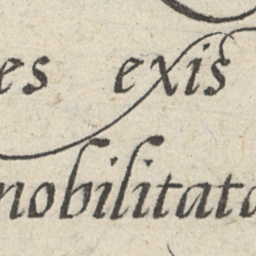 es exis
nobilitata